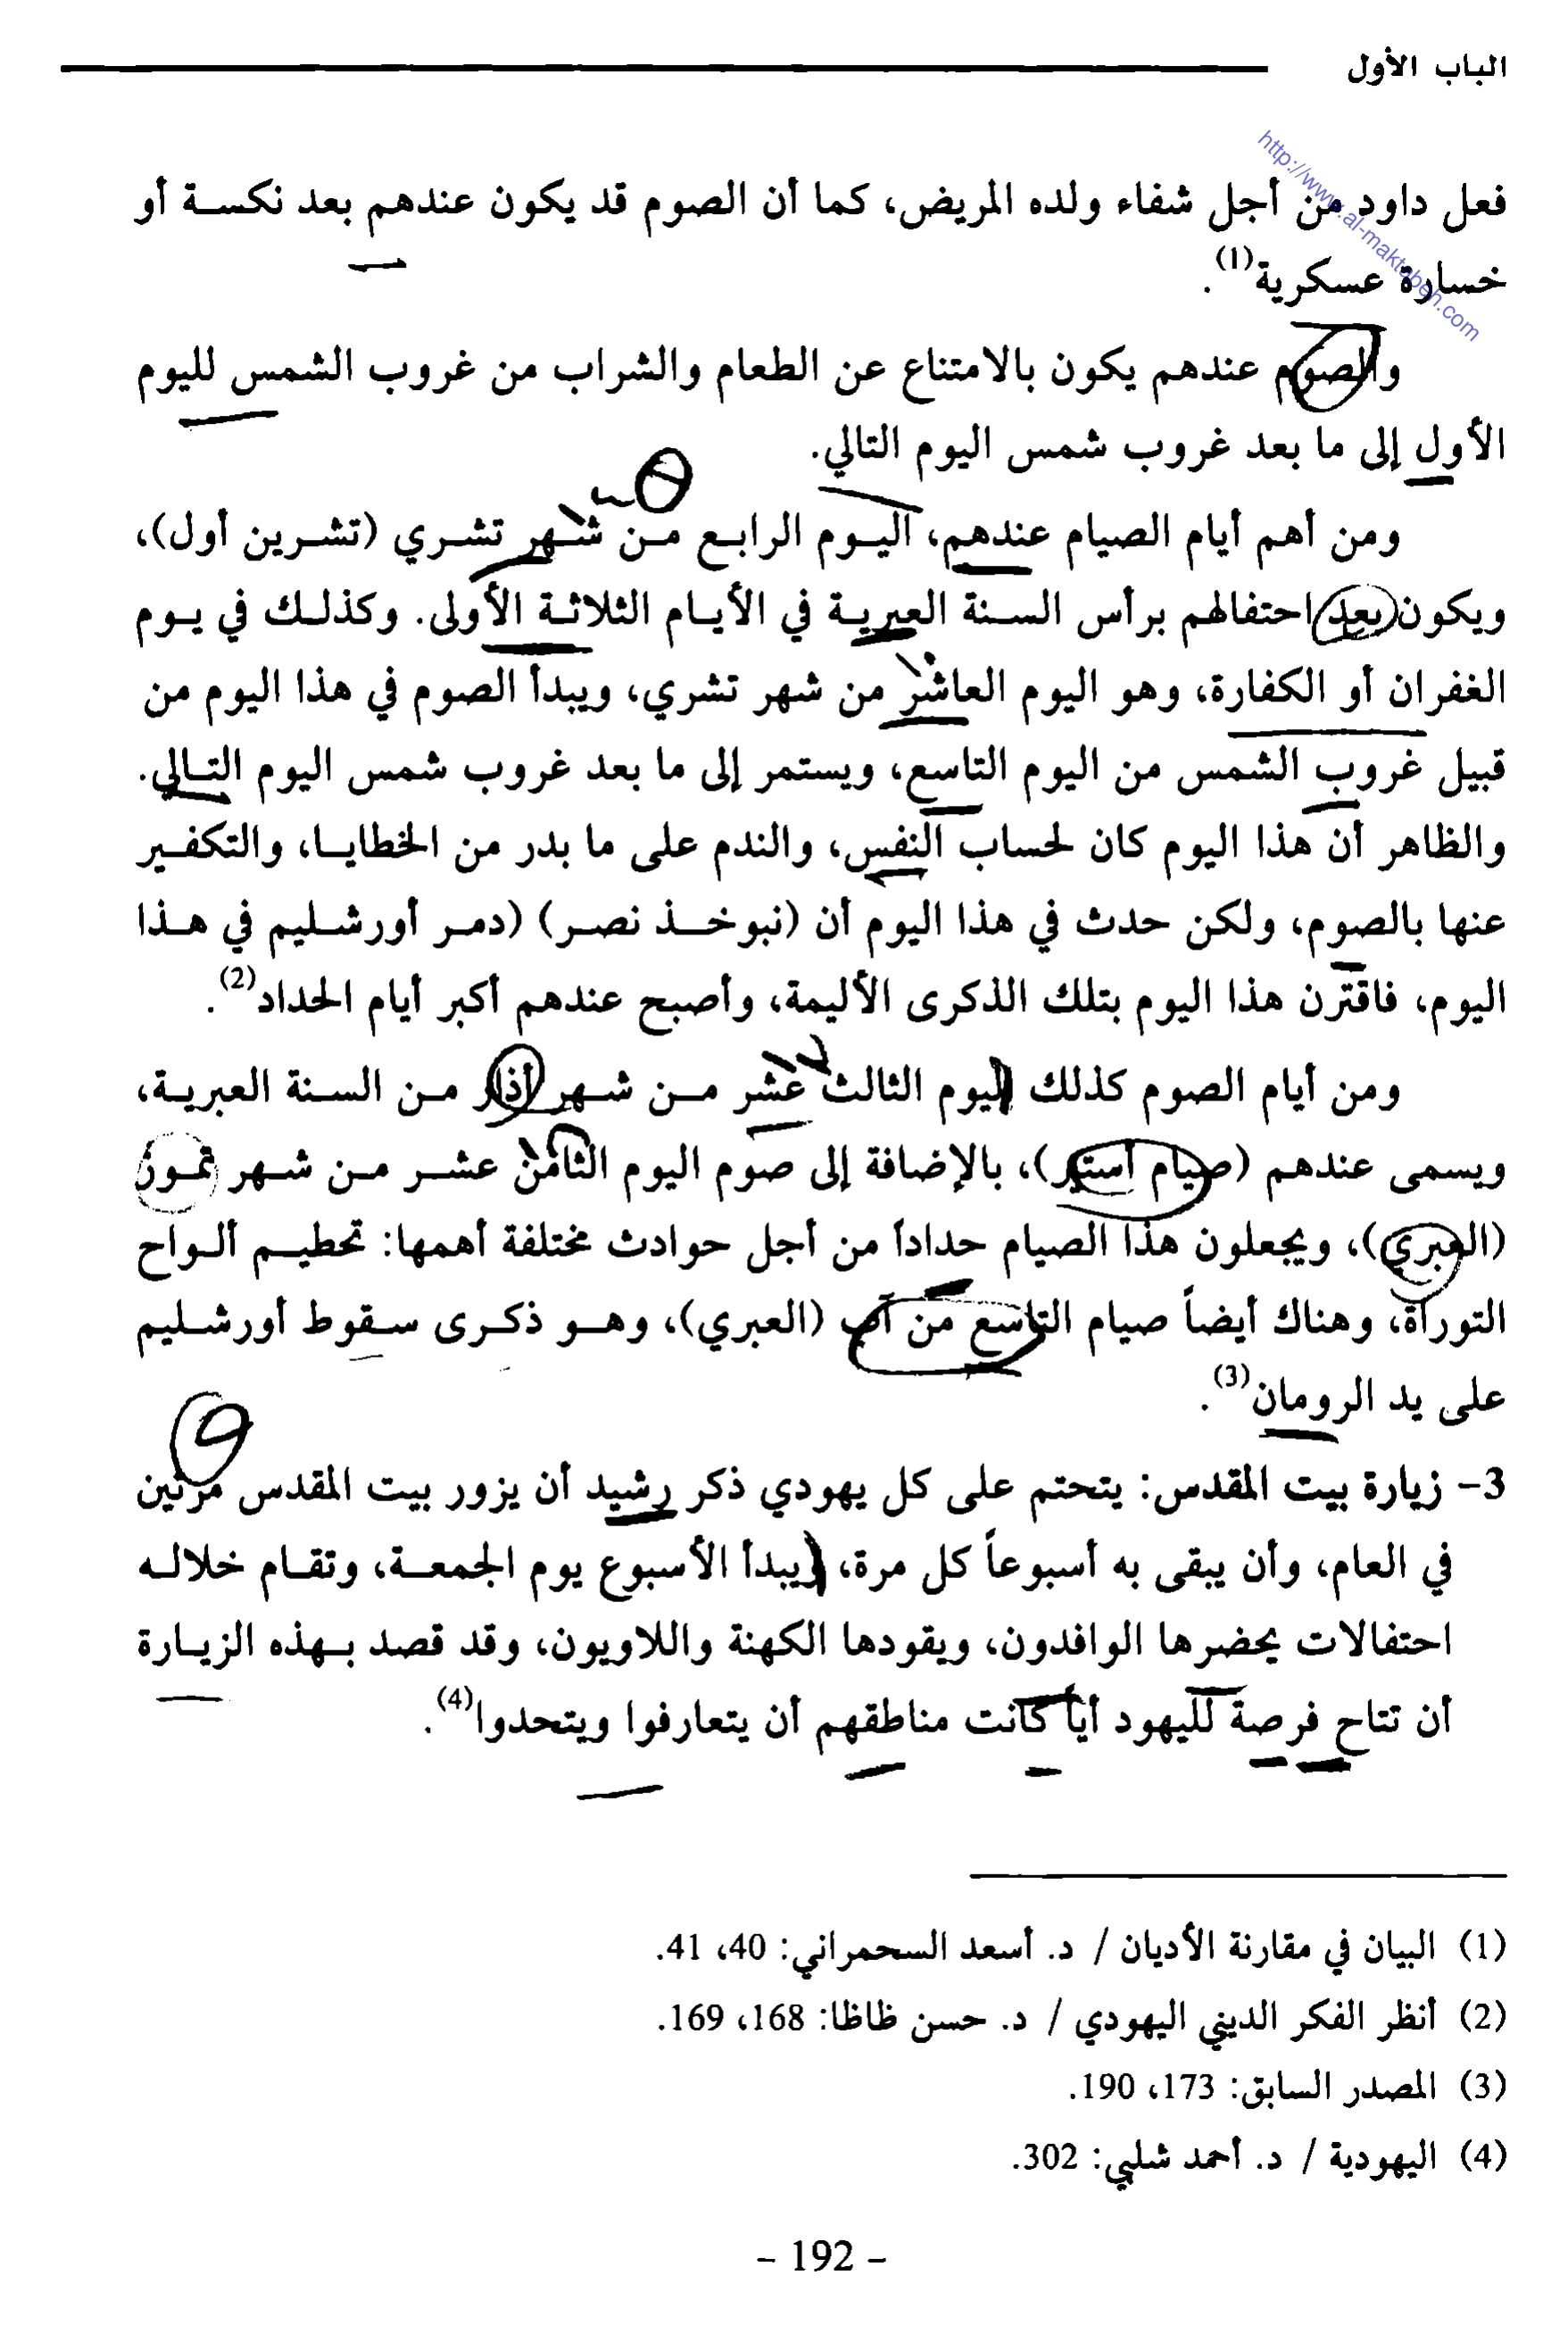 الباب الأول
http://www.al-maktabeh.com
فعل داود من أجل شفاء ولده المريض، كما أن الصوم قد يكون عندهم بعد نكسة أو
خسارة عسكرية(1).
والصوم عندهم يكون بالامتناع عن الطعام والشراب من غروب الشمس لليوم
الأول إلى ما بعد غروب شمس اليوم التالي.
ومن أهم أيام الصيام عندهم، اليوم الرابع من شهر تشري (تشرين أول)،
ويكون بعد احتفالهم برأس السنة العبرية في الأيام الثلاثة الأولى. وكذلك في يوم
الغفران أو الكفارة، وهو اليوم العاشر من شهر تشري، ويبدأ الصوم في هذا اليوم من
قبيل غروب الشمس من اليوم التاسع، ويستمر إلى ما بعد غروب شمس اليوم التالي.
والظاهر أن هذا اليوم كان لحساب النفس، والندم على ما بدر من الخطايا، والتكفير
عنها بالصوم، ولكن حدث في هذا اليوم أن (نبوخذ نصر) (دمر أورشليم في هذا
اليوم، فاقترن هذا اليوم بتلك الذكرى الأليمة، وأصبح عندهم أكبر أيام الحداد(2).
ومن أيام الصوم كذلك اليوم الثالث عشر من شهر آذار من السنة العبرية،
ويسمى عندهم (صيام أستير)، بالإضافة إلى صوم اليوم الثامن عشر من شهر تموز
(العبري)، ويجعلون هذا الصيام حداداً من أجل حوادث مختلفة أهمها: تحطيم ألواح
التوراة، وهناك أيضاً صيام التاسع من آب (العبري)، وهو ذكرى سقوط أورشليم
على يد الرومان(3).
3- زيارة بيت المقدس: يتحتم على كل يهودي ذكر رشيد أن يزور بيت المقدس مرتين
في العام، وأن يبقى به أسبوعاً كل مرة، ويبدأ الأسبوع يوم الجمعة، وتقام خلاله
احتفالات يحضرها الوافدون، ويقودها الكهنة واللاويون، وقد قصد بهذه الزيارة
أن تتاح فرصة لليهود أياً كانت مناطقهم أن يتعارفوا ويتحدوا(4).
(1) البيان في مقارنة الأديان / د. أسعد السحمراني: 40، 41.
(2) أنظر الفكر الديني اليهودي / د. حسن ظاظا: 168، 169.
(3) المصدر السابق: 173، 190.
(4) اليهودية / د. أحمد شلبي: 302.
- 192 -